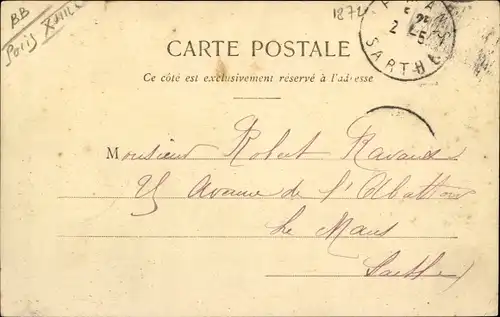 BB
Paris XIIIe
1872
2
SARTHE
CARTE POSTALE
Ce côté est exclusivement réservé à l'adresse
Monsieur Robert
Avenue de l'Abattoir
Le Mans
Sarthe